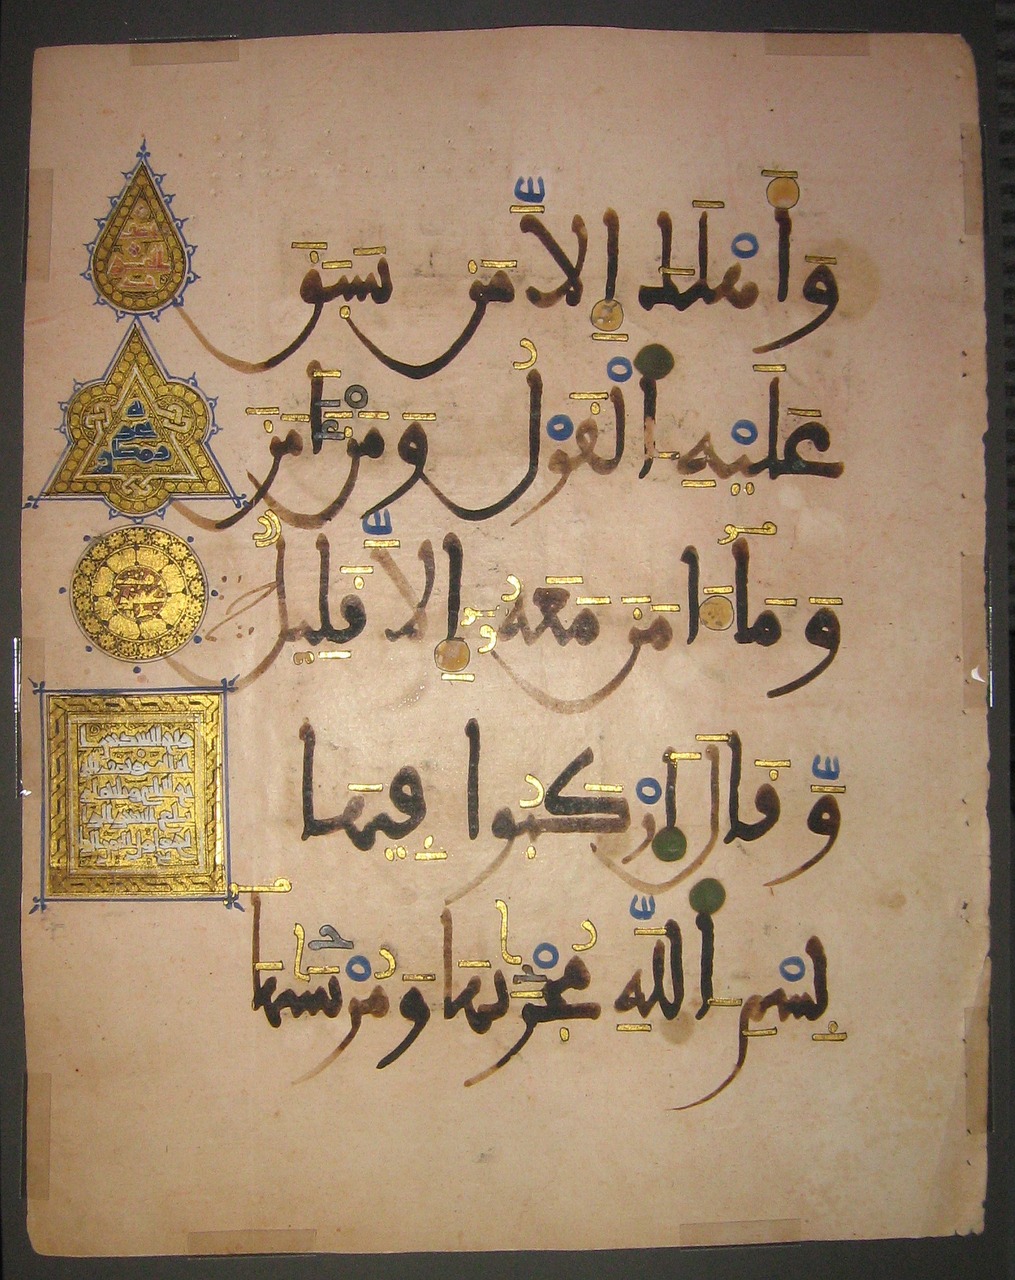 وَأَهْلَكَ إِلَّا مَن سَبَقَ
عَلَيْهِ الْقَوْلُ وَمَنْ ءَامَنَ
وَمَا ءَامَنَ مَعَهُ إِلَّا قَلِيلٌ
وَّقَالَ ارْكَبُوا فِيهَا
بِسْمِ اللَّهِ مُجْرَىٰهَا وَمُرْسَىٰهَا